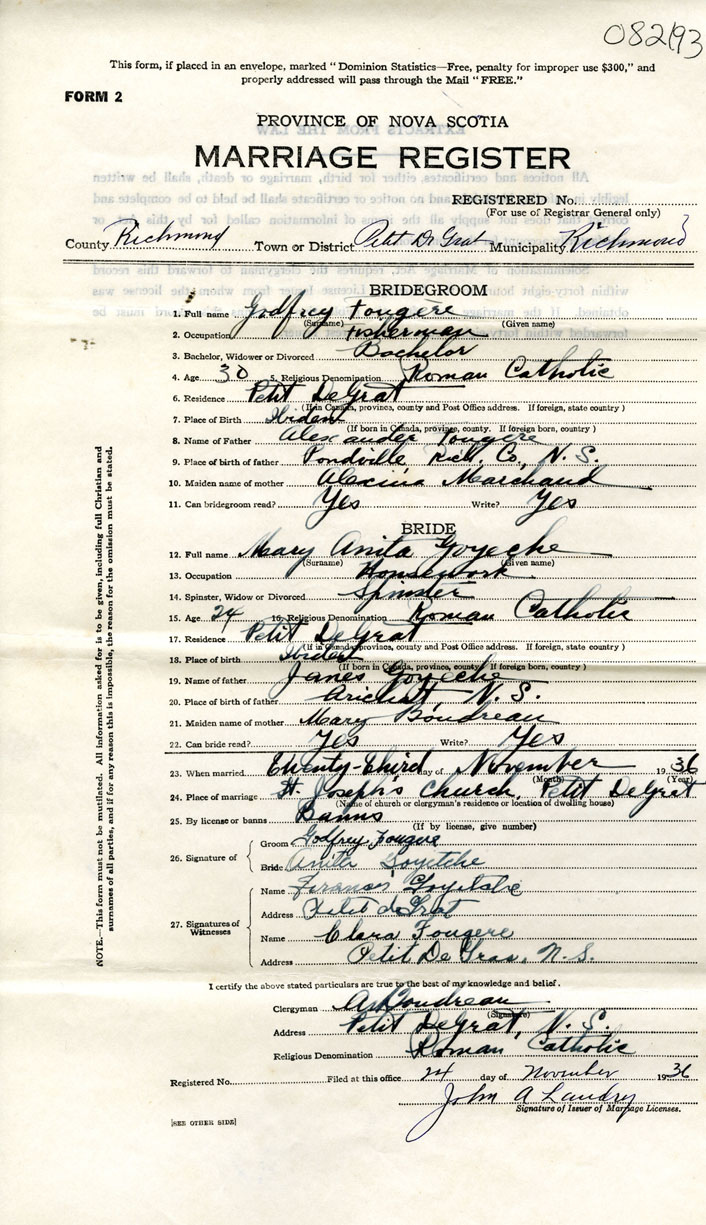 082193
This form, if placed in an envelope, marked "Dominion Statistics—Free, penalty for improper use $300," and
properly addressed will pass through the Mail "FREE."
FORM 2
PROVINCE OF NOVA SCOTIA
MARRIAGE REGISTER
REGISTERED No.
(For use of Registrar General only)
County Richmond Town or District Petit De Grat Municipality Richmond
BRIDEGROOM
1. Full name Godfrey Fougère
(Surname) (Given name)
2. Occupation Fisherman
3. Bachelor, Widower or Divorced Bachelor
4. Age 30 5. Religious Denomination Roman Catholic
6. Residence Petit DeGrat
(If in Canada, province, county and Post Office address. If foreign, state country)
7. Place of Birth Ibidem
(If born in Canada, province, county. If foreign born, country)
8. Name of Father Alexander Fougère
9. Place of birth of father Pondville Rich. Co., N.S.
10. Maiden name of mother Marchand
11. Can bridegroom read? Yes Write? Yes
BRIDE
12. Full name Mary Anita Goyeche
(Surname) (Given name)
13. Occupation Housework
14. Spinster, Widow or Divorced Spinster
15. Age 24 16. Religious Denomination Roman Catholic
17. Residence Petit DeGrat
(If in Canada, province, county and Post Office address. If foreign, state country)
18. Place of birth Ibidem
(If born in Canada, province, county. If foreign born, country)
19. Name of father James Goyeche
20. Place of birth of father Arichat, N.S.
21. Maiden name of mother Mary Boudreau
22. Can bride read? Yes Write? Yes
23. When married Twenty-third day of November 1936
(Month) (Year)
24. Place of marriage St. Joseph's Church, Petit DeGrat
(Name of church or clergyman's residence or location of dwelling house)
25. By license or banns Banns
(If by license, give number)
26. Signature of
Groom Godfrey Fougere
Bride Anita Goyetche
27. Signatures of Witnesses
Name Goyetche
Address Petit de Grat
Name Clara Fougere
Address Petit De Grat, N.S.
I certify the above stated particulars are true to the best of my knowledge and belief.
Clergyman Boudreau
(Signature)
Address Petit DeGrat, N.S.
Religious Denomination Roman Catholic
Registered No. Filed at this office 24 day of November 1936
John A Landry
Signature of Issuer of Marriage Licenses.
[SEE OTHER SIDE]
NOTE.—This form must not be mutilated. All information asked for is to be given, including full Christian and
surnames of all parties, and if for any reason this is impossible, the reason for the omission must be stated.